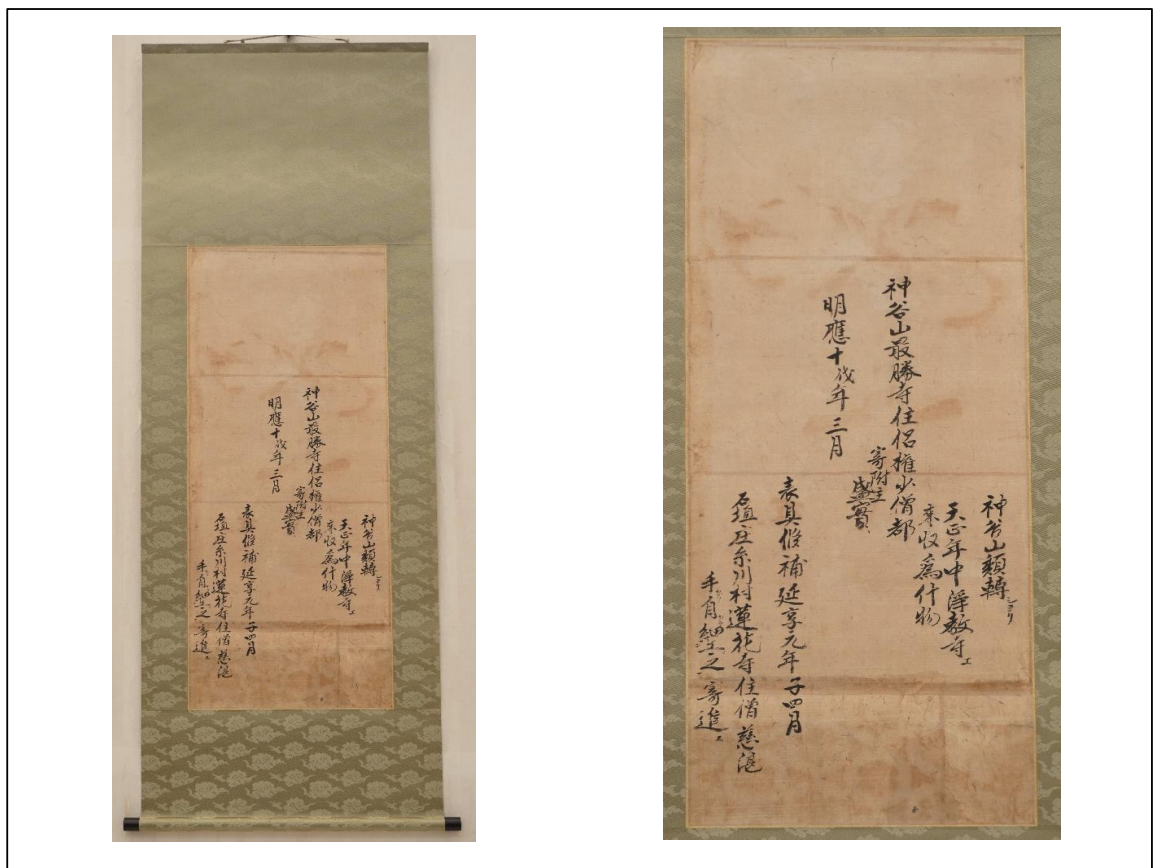 神谷山
天正年中浄教寺エ
来収為什物
神谷山最勝寺住侶権少僧都
寄附主
盛實
明應十 年三月
表具修補延享元年子四月
石垣庄糸川村蓮花寺住僧慈湛
手自繕之寄進
神谷山
天正年中浄教寺エ
来収為什物
神谷山最勝寺住侶権少僧都
寄附主
盛實
明應十 年三月
表具修補延享元年子四月
石垣庄糸川村蓮花寺住僧慈湛
手自繕之寄進